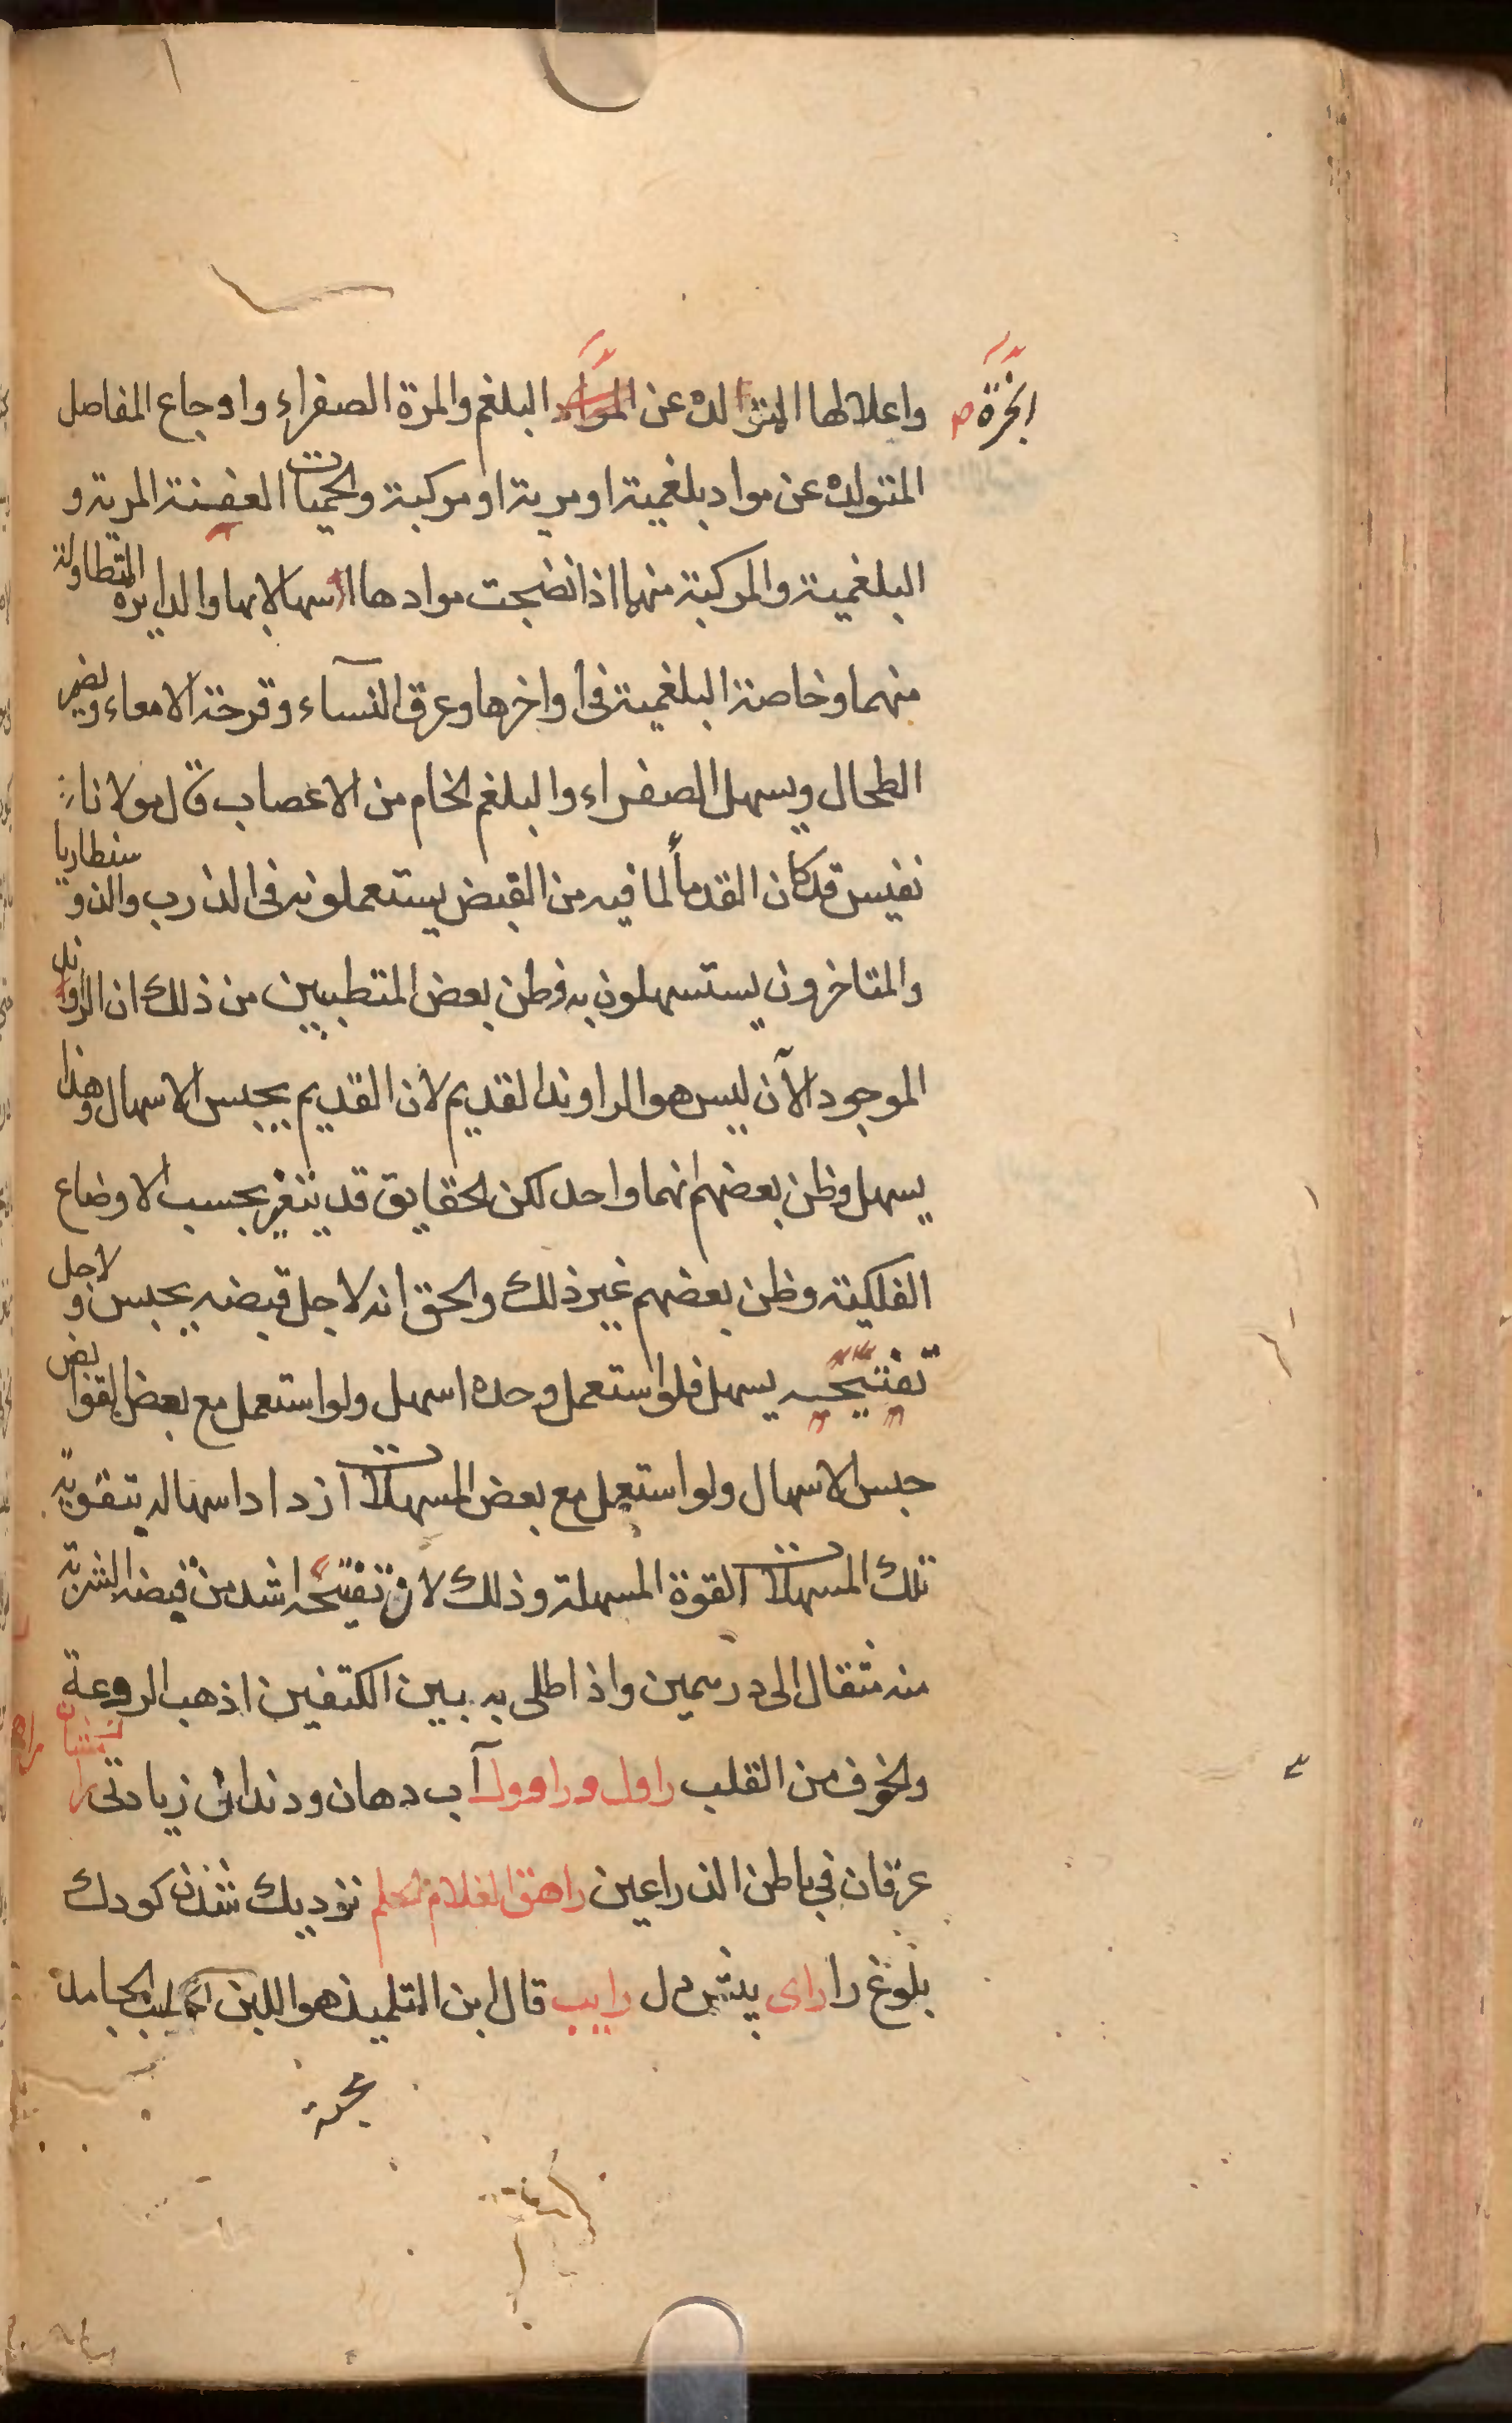 ابخرة صح
واعلالها المتولدة عن المواد البلغم والمرة الصفراء واوجاع المفاصل
المتولدة عن مواد بلغمية او مرية او مركبة والحميات العفنة المرية و
البلغمية والمركبة منهما اذا نضجت موادها اسهالا بها والدايرة المتطاولة
منهما وخاصة البلغمية فى أواخرها وعرق النسآء وقرحة الامعاء ويضمر
الطحال ويسهل الصفراء والبلغم الخام من الاعصاب قال مولانا
نفيس قد كان القدمأ لما فيه من القبض يستعملونه فى الذرب والذوسنطاريا
والمتاخرون يستسهلون به وظن بعض المتطببين من ذلك ان الراوند
الموجود الآن ليس هو الراوند القديم لان القديم يحبس الاسهال وهذا
يسهل وظن بعضهم انهما واحد لكن الحقايق قد يتغير بحسب الاوضاع
الفلكية وظن بعضهم غير ذلك والحق انه لاجل قبضه يحبس ولاجل
تفتيحه يسهل فلو استعمل وحده اسهل ولو استعمل مع بعض القوابض
حبس الاسهال ولو استعمل مع بعض المسهلات ازداد اسهاله بتقوية
تلك المسهلات القوة المسهلة وذلك لان تفتيحه اشد من قبضه الشربة
منه مثقال الى درهمين واذا طلى به بين الكتفين اذهب الروعة
والخوف من القلب راول وراوول آب دهان ودندان زيادتى راهشان
عرقان في باطن الذراعين راهق الغلام الحلم نزديك شدن كودك
بلوغ را راى بينش دل رايب قال ابن التلميذ هو اللبن الحامد